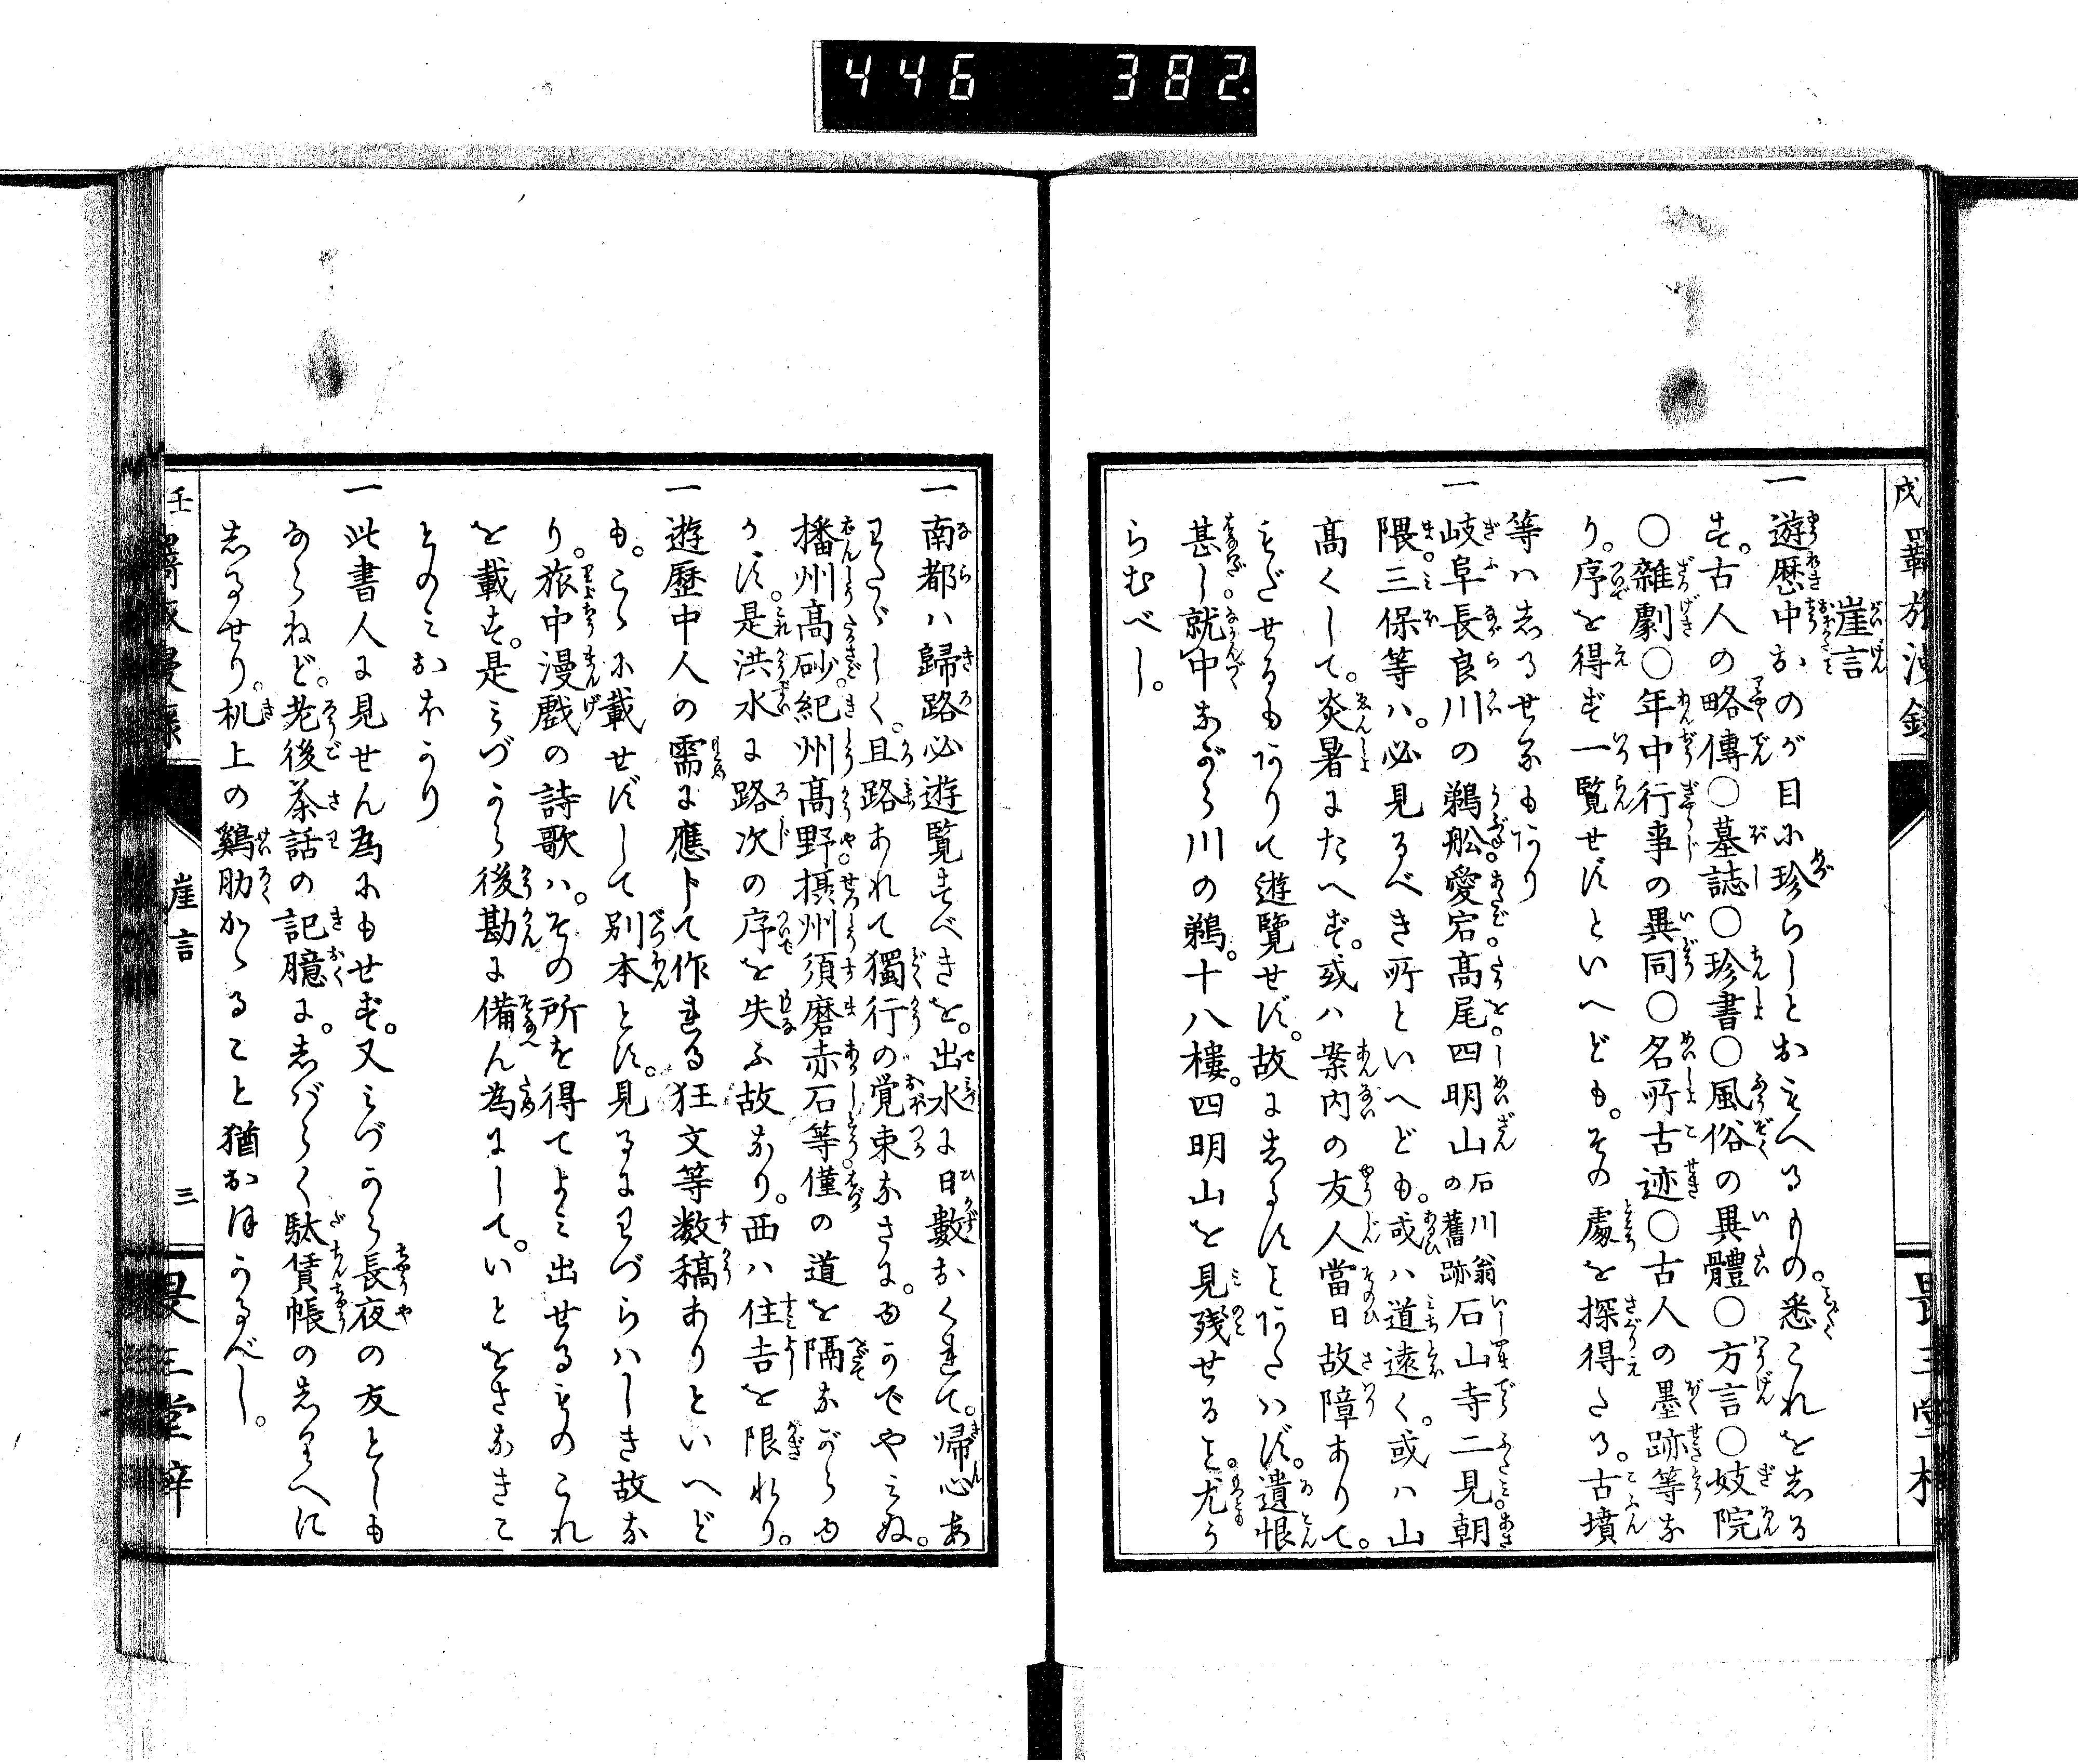 446 382.
羇旅漫録
崖言
一遊歴中おのが目に珍らしとおもへるもの。悉これをしる
す。古人の略傳〇墓誌〇珍書〇風俗の異體〇方言〇妓院
〇雜劇〇年中行事の異同〇名所古迹〇古人の墨跡等な
り。序を得ず一覧せずといへども。その處を探得たる。古墳
等ハしるせるもあり
一岐阜長良川の鵜舩愛宕高尾四明山石川翁の舊跡石山寺二見朝
隈。三保等ハ。必見るべき所といへども。或ハ道遠く。或ハ山
高くして。炎暑にたへず。或ハ案内の友人當日故障ありて。
もだせるもありて遊覽せず。故にしるすにあたハず。遺恨
甚し就中ながら川の鵜。十八樓。四明山を見残せること。尤う
らむべし。
一南都ハ歸路必遊覧すべきを。出水に日數おくれて。帰心あ
わたゞしく。且路あれて獨行の覚束なさに。ゆかでやみぬ。
播州高砂。紀州高野。摂州須磨赤石等僅の道を隔ながらゆ
かず。是洪水に路次の序を失ふ故なり。西ハ住吉を限れり。
一遊歴中人の需に應じて作れる狂文等数稿ありといへど
も。こゝに載せずして別本とす。見るにわづらハしき故な
り。旅中漫戯の詩歌ハ。その所を得てよみ出せるものこれ
を載す。是みづから後勘に備ん為にして。いとをさなきこ
とのみおほかり
一此書人に見せん為にもせず。又みづから長夜の友としも
ならねど。老後茶話の記臆に。しばらく駄賃帳のしりへに
しるせり。机上の鷄肋かゝること猶おほかるべし。
壬 崖言 三